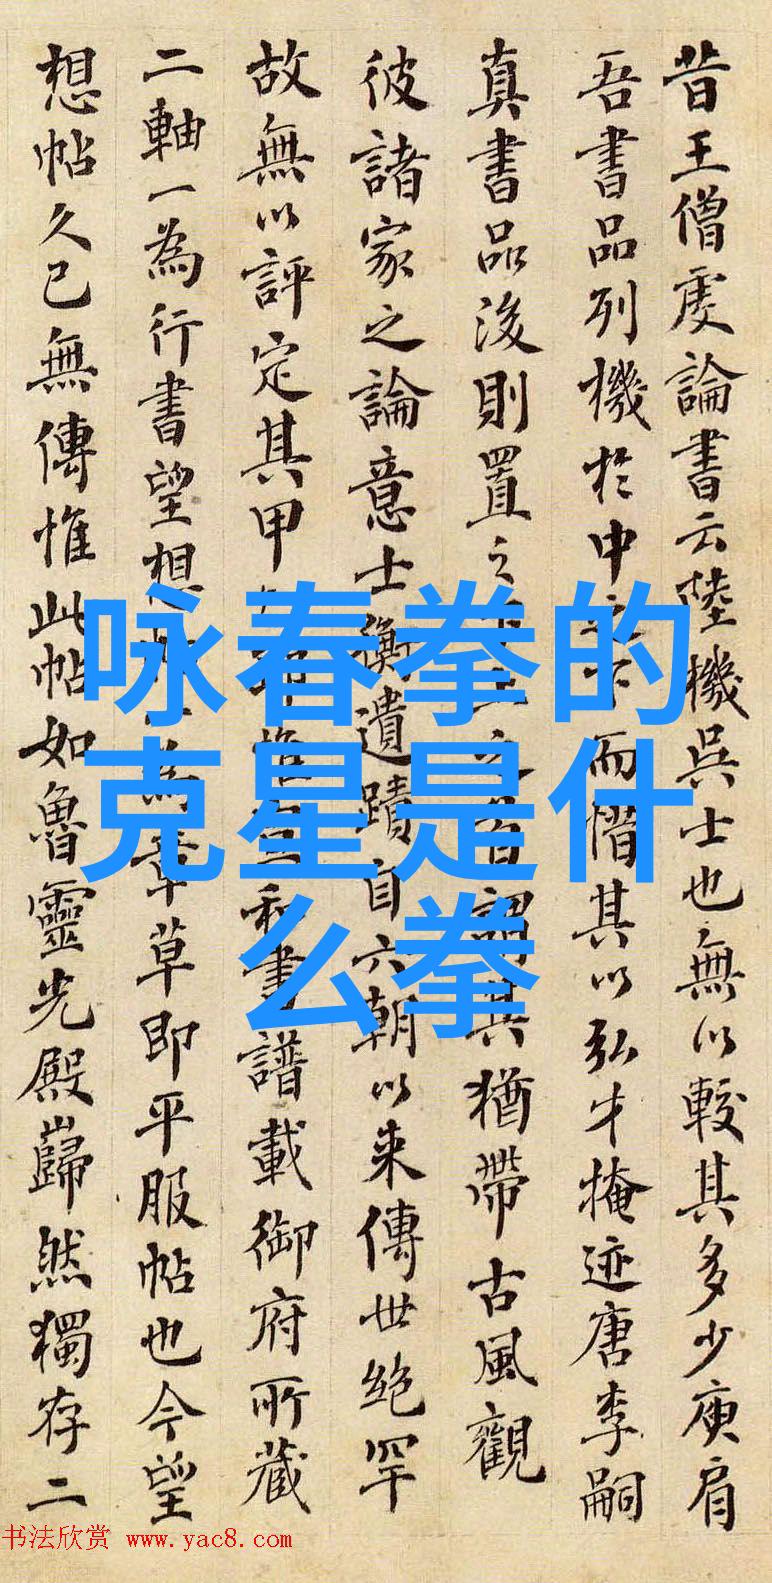 昔王僧虔論書云陸機吳士也無以較其多少庾肩
吾書品列機於中之下而惜其以弘才掩迹唐李嗣
真書品後則置之下上之首謂其猶帶古風觀
彼諸家之論意士衡遺蹟自六朝以来傳世絶罕
故無以評定其甲惟和書譜載御府所藏
二軸一為行書望想為章草即平服帖也今望
想帖久已無傳惟此帖如魯靈光殿巋然獨存二
咏春拳的
克星是什
么拳
书法欣赏 www.yac8.com